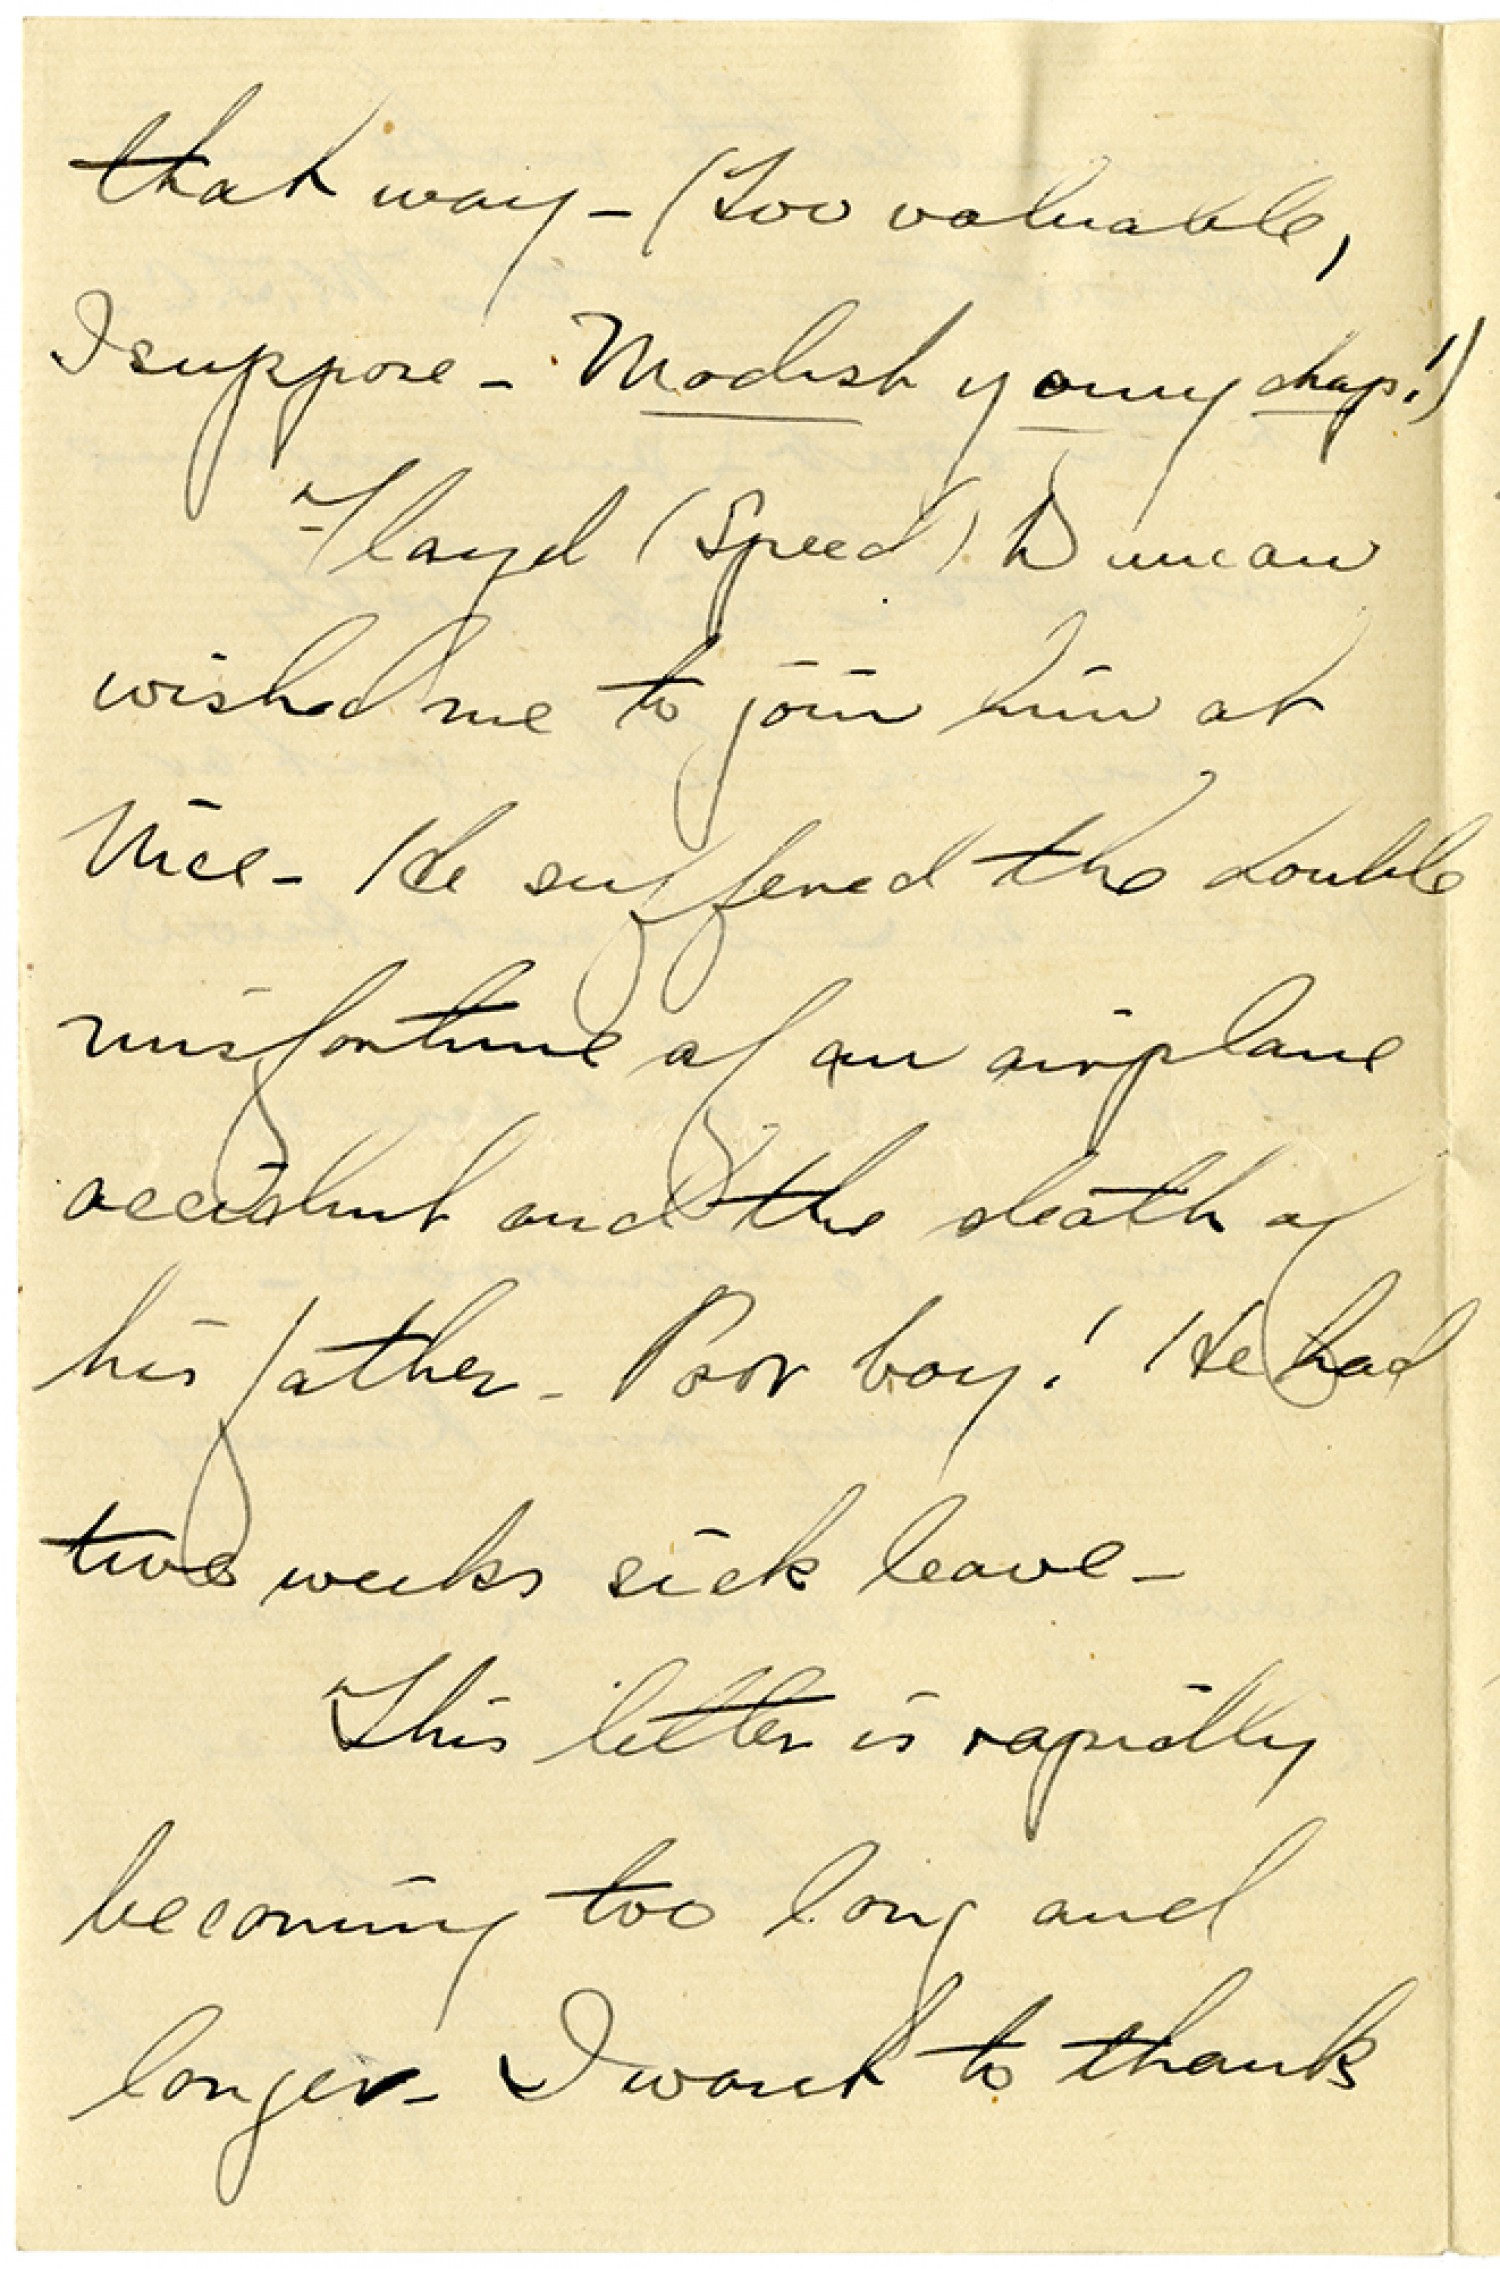 that way - (Too valuable,
I suppose - Modish young chap!)
Floyd (Speed) Duncan
wished me to join him at
Nice - He suffered the double
misfortune of an airplane
accident and the death of
his father - Poor boy! He had
two weeks sick leave -
This letter is rapidly
becoming too long and
longer - I want to thank